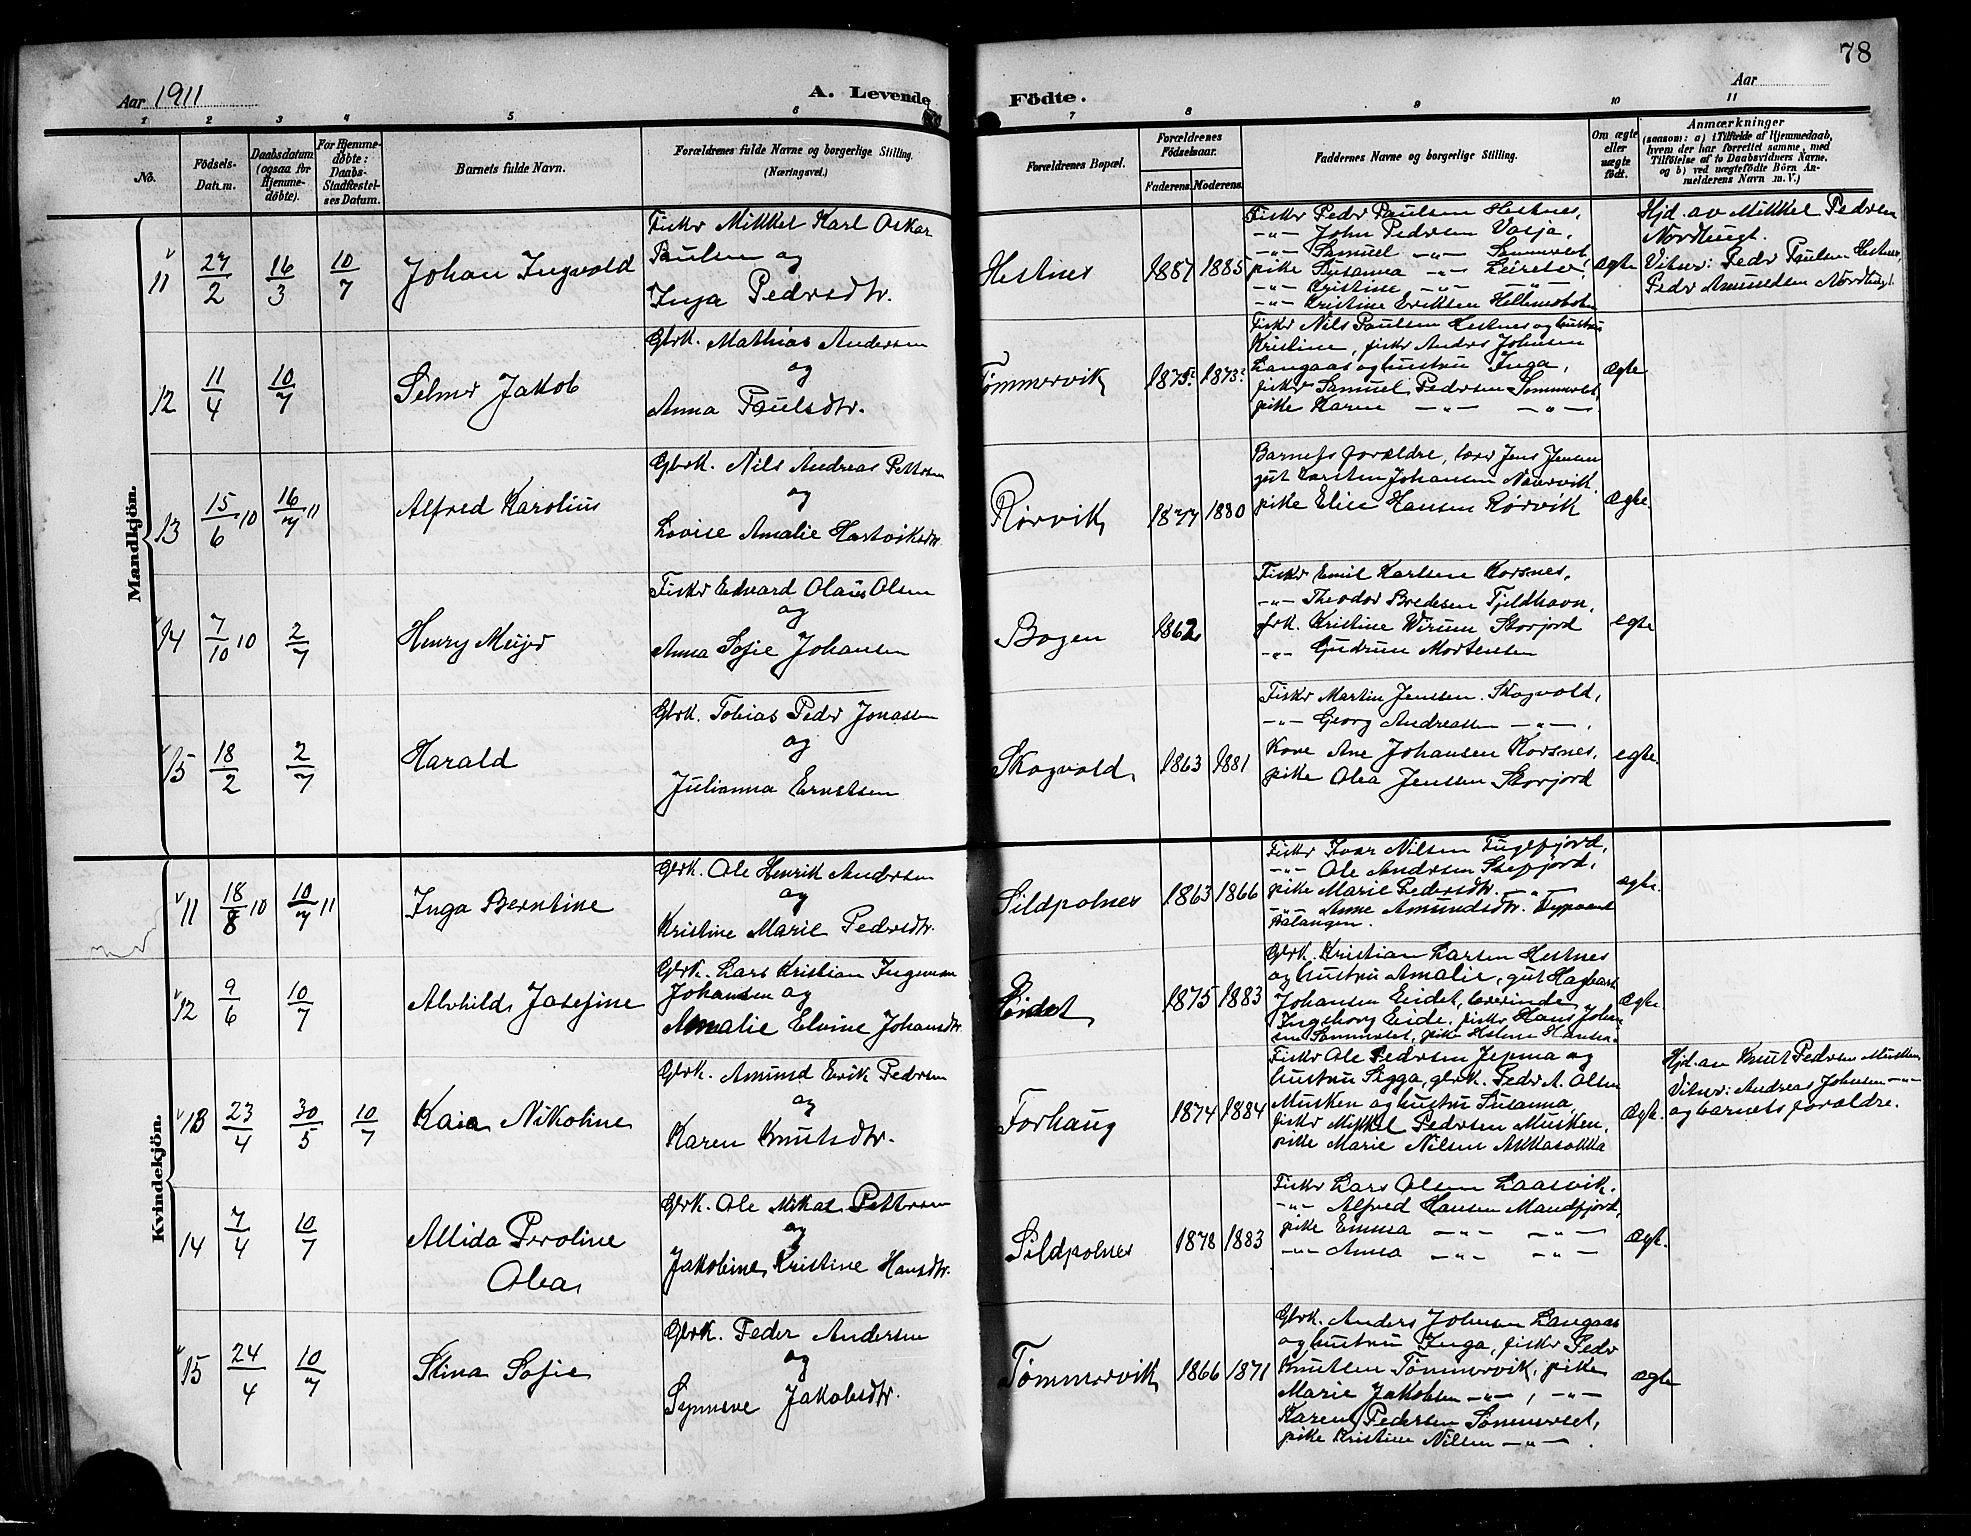 78
Aar 1911
A. Levende
Födte.
Aar
1 2 3 4 5 6 7 8 9 10 11
No.
Födsels-Datum.
Daabsdatum (ogsaa for Hjemmedöbte).
For Hjemmedöbte: Daabs-Stadfæstelses Datum.
Barnets fulde Navn.
Forældrenes fulde Navne og borgerlige Stilling. (Næringsvei.)
Forældrenes Bopæl.
Forældrenes Födselsaar.
Faderens. Moderens.
Faddernes Navne og borgerlige Stilling.
Om ægte eller uægte födt.
Anmærkninger
(saasom: a) i Tilfælde af Hjemmedaab, hvem der har forrettet samme, med Tilföielse af to Daabsvidners Navne, og b) ved uægtefödte Börn Anmelderens Navn m. V.)
Mandkjön.
11 27/2 16/3 10/7 Johan Ingvald
Fisker Mikkel Karl Oskar
Paulsen og
Inga Pedersdtr.
Hestnes 1887 1885
Fisker Peder Paulsen Hestnes,
-"- John Pedersen Vasja,
-"- Samuel -"- Sommerset,
pike Susanna -"- Leireter,
-"- Kristine -"- -"-
-"- Kristine Eriksen Hellmobotn
ægte
Hjd. av Mikkel Pedersen
Nordbugt.
Vitner: Peder Paulsen Hestnes,
Peder Amundsen Nordbugt.
12 11/4 10/7 Selmer Jakob
Gbrk. Mathias Andersen
og
Anna Paulsdtr.
Tømmervik 1875 1873
Fisker Nils Paulsen Hestnes og hustru
Kristine, fisker Anders Johnsen
Langaas og hustru Inga,
fisker Samuel Pedersen Sommerset,
pike Karen -"- -"-
ægte
13 15/6 10 16/7 11 Alfred Karolius
Gbrk. Nils Andreas Pettersen
og
Lovise Amalie Hartviksdtr.
Rørvik 1877 1880
Barnets forældre, lærer Jens Jensen
gut Karsten Johansen Naurvik
pike Elise Hansen Rørvik
ægte.
14 7/10 10 2/7 Henry Meyer
Fisker Edvard Olaus Olsen
og
Anna Sofie Johansen
Bogen 1862
Fisker Emil Karlsen Korsnes,
-"- Theodor Bredesen Tjeldhavn,
frk. Kristine Wirum Storjord
-"- Gudrun Mortensen
egte
15 18/2 2/7 Harald
Gbrk. Tobias Peder Jonassen
og
Julianna Ernstsen
Skogvold, 1863 1881
Fisker Martin Jenssen Skogvold,
-"- Georg Andreassen -"-,
Kone Ane Johansen Korsnes,
pike Olea Jensen Storjord
egte.
Kvindekjön.
11 18/8 10 10/7 11 Inga Berntine
Gbrk. Ole Henrik Andersen
og
Kristine Marie Pedersdtr.
Sildpolnes 1863 1866
Fisker Ivar Nilsen Fuglefjord,
-"- Ole Andersen Skefjord,
pike Marie Pedersdtr. -"-
-"- Anne Amundsdtr.
Balangen.
ægte.
12 9/6 10/7 Alvhild Josefine
Gbrk. Lars Kristian Ingeman
Johansen og
Amalie Elvine Johansdtr.
Eidet 1875 1883
Gbrk. Kristian Larsen Hestnes
og hustru Amalie, gut Hagbart
Johansen Eidet, lærerinde
Ingeborg Eide, fisker Hans Johan-
sen Sommerset, pike Helene Hansen
ægte.
13 23/4 30/5 10/7 Kaia Nikoline
Gbrk. Amund Erik Pedersen
og
Karen Knutsdtr.
Forhaug 1874 1884
Fisker Ole Pedersen Jepma og
hustru Sigga, gbrk. Peder A. Olsen
Musken og hustru Susanna,
fisker Mikkel Pedersen Musken,
pike Marie Nilsen Akkasokka
Ægte.
Hjd. av Knut Pedersen Musken,
Vitner: Andreas Johnsen -"-
og barnets forældre.
14 7/4 10/7 Allida Peroline
Olea
Gbrk. Ole Mikal Pettersen
og
Jakobine Kristine Hansdtr.
Sildpolnes 1878 1883
Fisker Lars Olsen Laasvik,
-"- Alfred Hansen Mandfjord,
pike Emma -"- -"-
-"- Anna -"- -"-
Ægt.
15 24/4 10/7 Stina Sofie
Gbrk. Peder Andersen
og
Synneve Jakobsdtr.
Tømmervik 1866 1871
Gbrk. Anders Johnsen Langaas
og hustru Inga, fisker Peder
Knutsen Tømmervik, pike
Marie Jakobsen -"-, -"-
Karen Pedersen Sommerset,
pike Kristine Nilsen -"-.
ægte